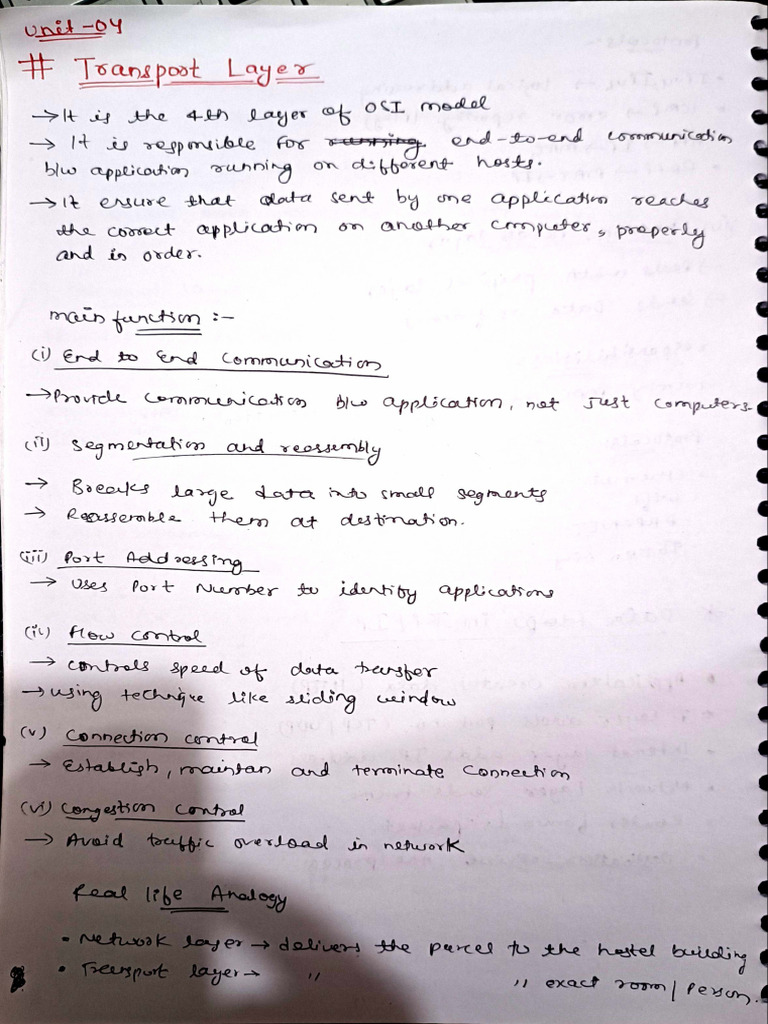 Unit-04
# Transport Layer
→ It is the 4th layer of OSI model
→ It is responsible for running end-to-end communication
b/w application running on different hosts.
→ It ensure that data sent by one application reaches
the correct application on another computer, properly
and in order.
main function :-
(i) End to End Communication
→ Provide Communication b/w application, not Just computers.
(ii) Segmentation and reassembly
→ Breaks large data into small segments
→ Reassemble them at destination.
(iii) Port Addressing
→ Uses Port Number to identify applications
(iv) Flow control
→ Controls speed of data transfer
→ using technique like sliding window
(v) Connection control
→ Establish, maintan and terminate Connection
(vi) Congestion Control
→ Avoid traffic overload in network
Real life Analogy
• Network layer → delivers the parcel to the hostel building
• Transport layer → " " exact room / Person.